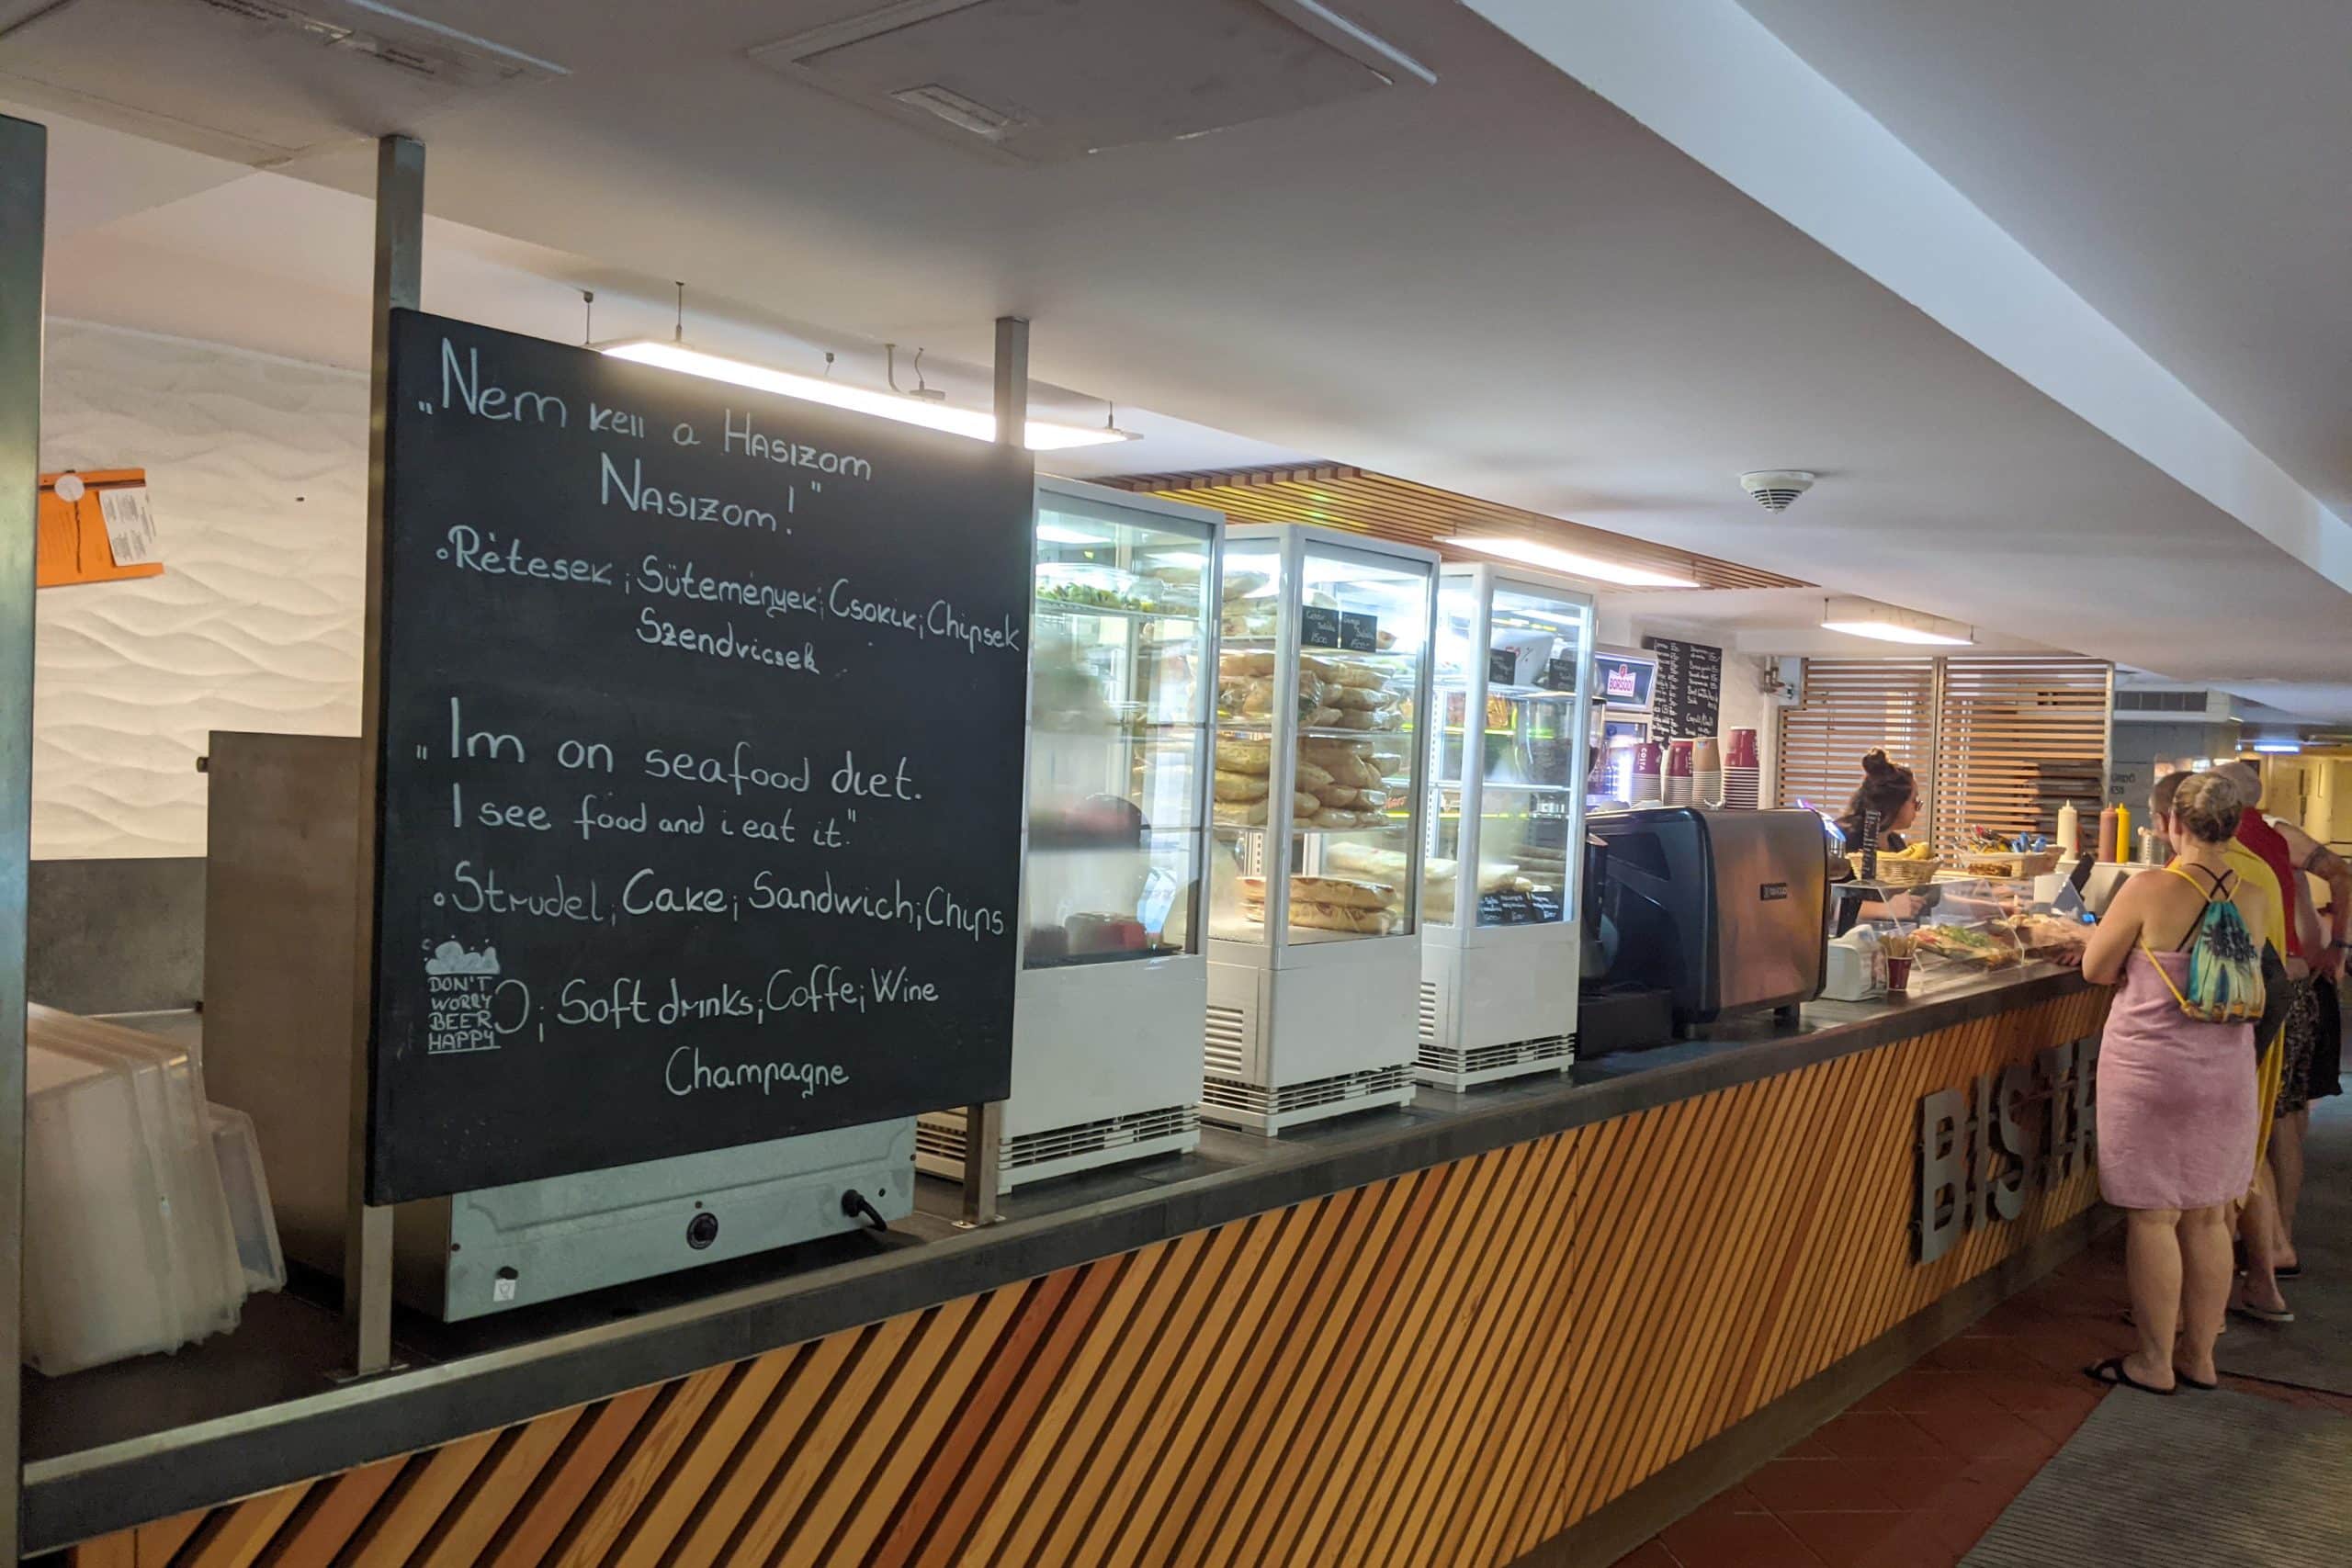 „Nem kell a Hasizom
Nasizom!"
◦Rètesek; Sütemények; Csokik; Chipsek
Szendvicsek
"Im on seafood diet.
I see food and i eat it."
◦Strudel; Cake; Sandwich; Chips
DON'T
WORRY
BEER
HAPPY
; Soft drinks; Coffe; Wine
Champagne
BORSODI
COSTA
BISTR